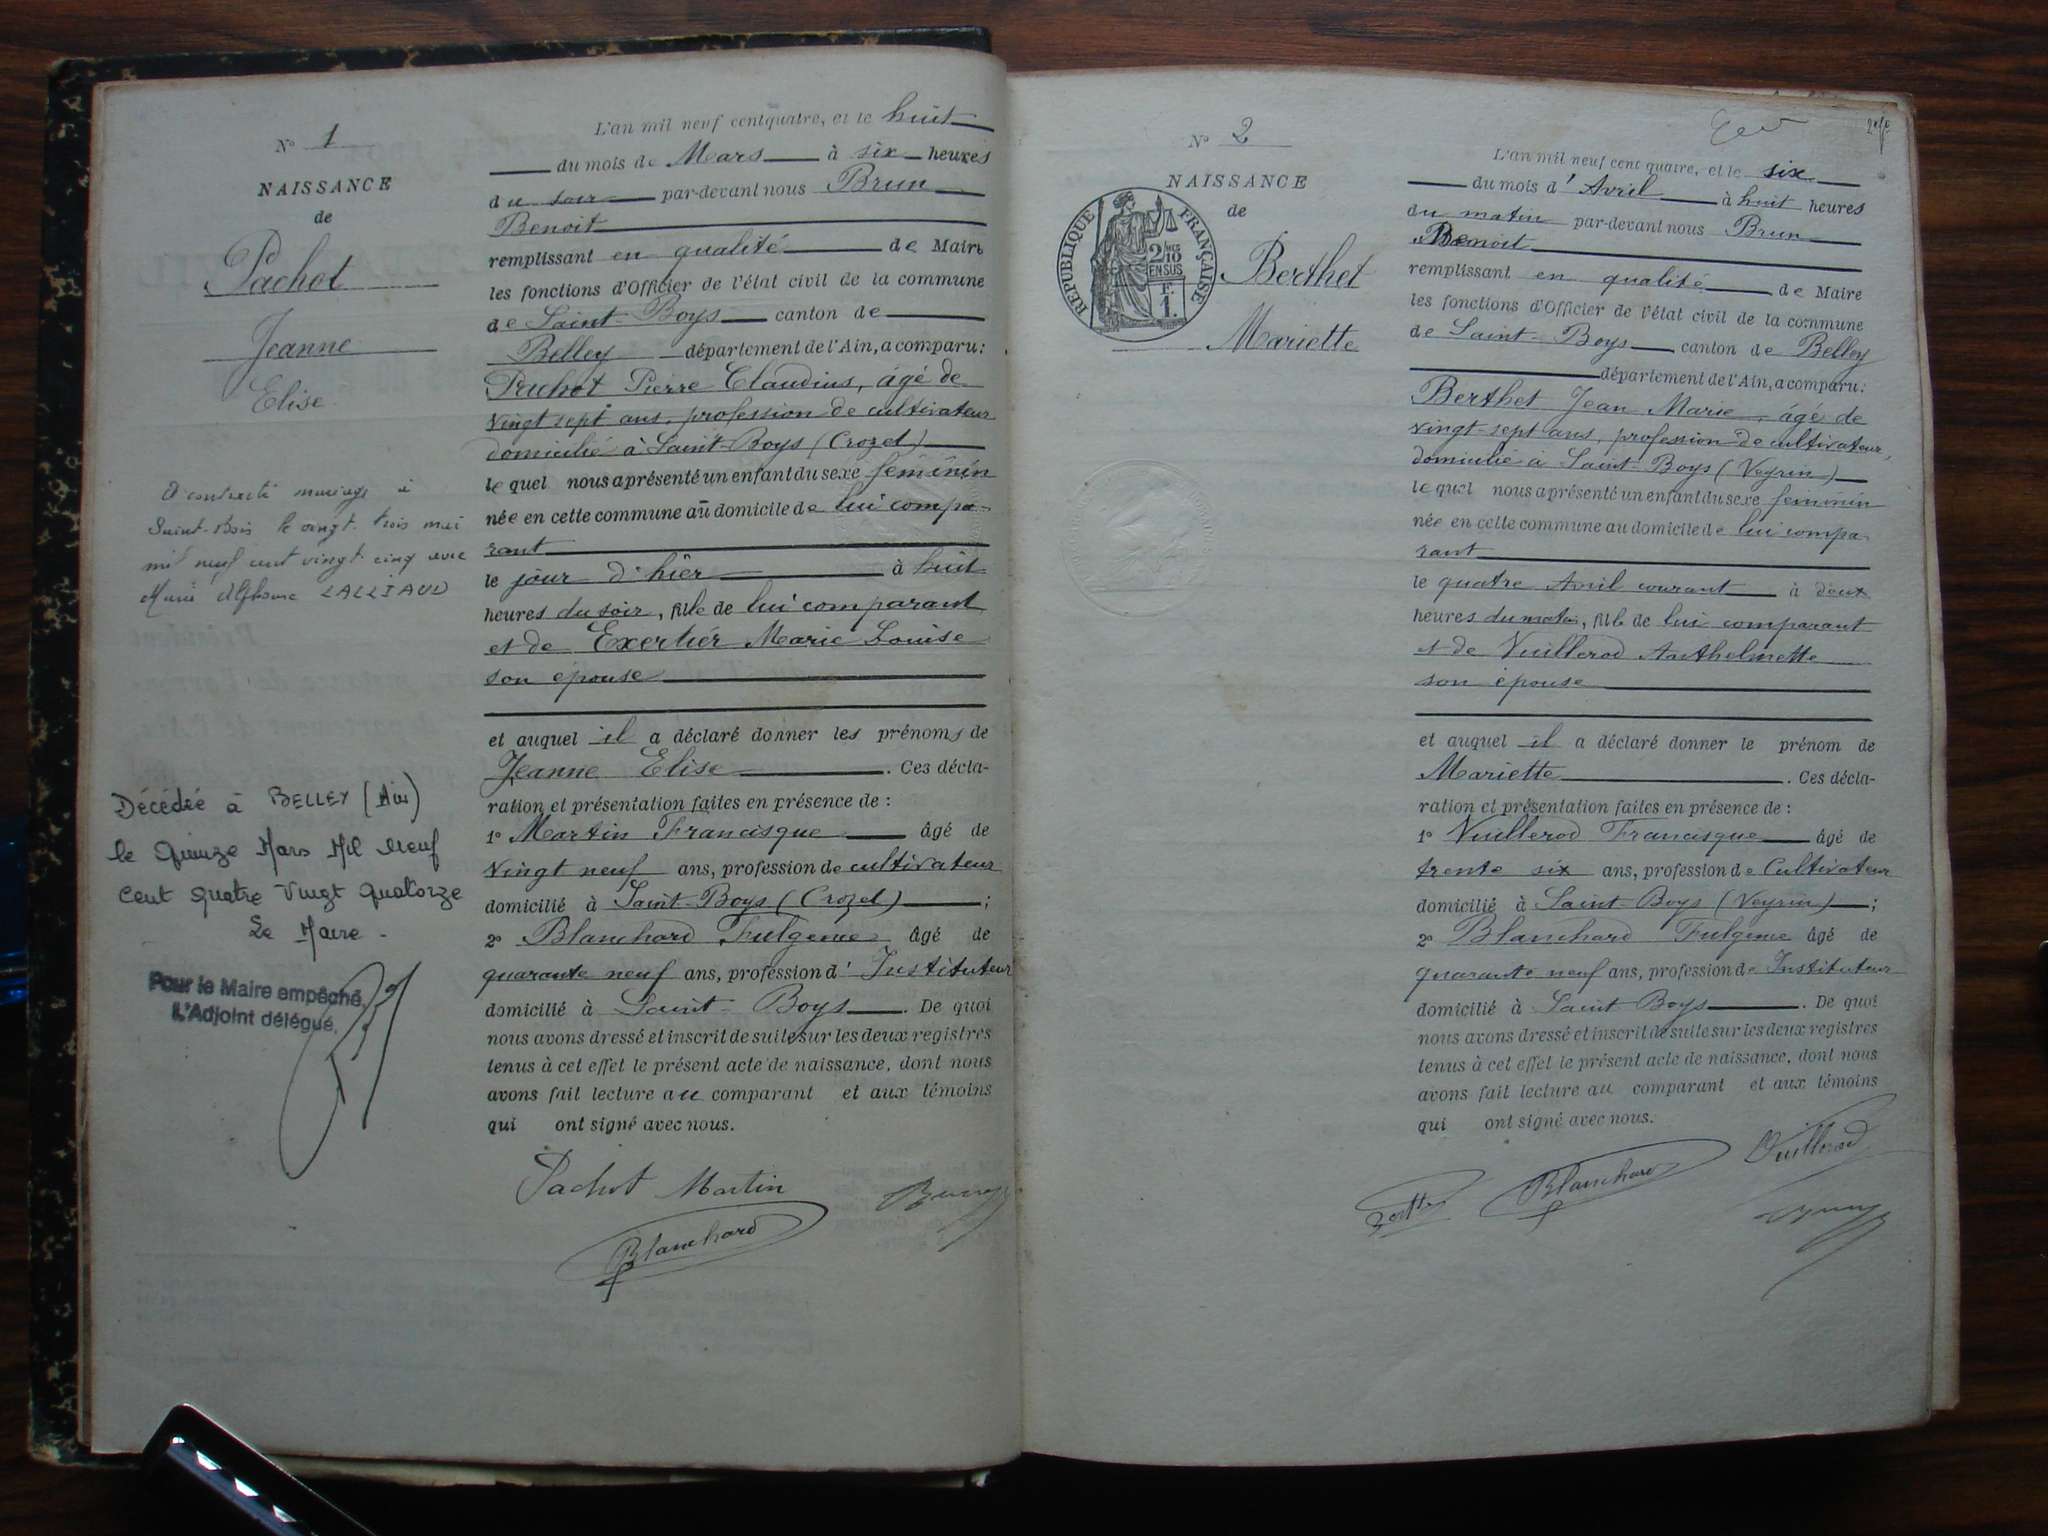 N° 1
NAISSANCE
de
Pachot
Jeanne
Elise
A contracté mariage à
Saint-Bois le vingt trois mai
mil neuf cent vingt cinq avec
Marie Alphonse LALLIAUD
Décédée à BELLEY (Ain)
le Quinze Mars Mil Neuf
Cent Quatre Vingt Quatorze
Le Maire -
Pour le Maire empêché,
L'Adjoint délégué,
L'an mil neuf cent quatre, et le huit
du mois de Mars à six heures
du soir par-devant nous Brun
Benoit
remplissant en qualité de Maire
les fonctions d'Officier de l'état civil de la commune
de Saint-Boys canton de
Belley département de l'Ain, a comparu:
Pachot Pierre Claudius, âgé de
vingt sept ans, profession de cultivateur
domicilié à Saint-Boys (Crozet)
le quel nous a présenté un enfant du sexe féminin
née en cette commune au domicile de lui compa-
rant
le jour d'hier à huit
heures du soir, fille de lui comparant
et de Exertier Marie Louise
son épouse
et auquel il a déclaré donner les prénoms de
Jeanne Elise. Ces décla-
ration et présentation faites en présence de :
1° Martin Francisque âgé de
vingt neuf ans, profession de cultivateur
domicilié à Saint-Boys (Crozet) ;
2° Blanchard Fulgence âgé de
quarante neuf ans, profession d'Instituteur
domicilié à Saint-Boys. De quoi
nous avons dressé et inscrit de suite sur les deux registres
tenus à cet effet le présent acte de naissance, dont nous
avons fait lecture au comparant et aux témoins
qui ont signé avec nous.
Pachot Martin
Blanchard
N° 2
NAISSANCE
de
RÉPUBLIQUE FRANÇAISE
2/10
EN SUS
F.
1.
Berthet
Mariette
L'an mil neuf cent quatre, et le six
du mois d'Avril à huit heures
du matin par-devant nous Brun
Benoit
remplissant en qualité de Maire
les fonctions d'Officier de l'état civil de la commune
de Saint-Boys canton de Belley
département de l'Ain, a comparu:
Berthet Jean Marie, âgé de
vingt-sept ans, profession de cultivateur,
domicilié à Saint-Boys (Veyrin)
le quel nous a présenté un enfant du sexe féminin
née en cette commune au domicile de lui compa-
rant
le quatre Avril courant à deux
heures du matin, fille de lui comparant
et de Vuillerod Anthelmette
son épouse
et auquel il a déclaré donner le prénom de
Mariette. Ces décla-
ration et présentation faites en présence de :
1° Vuillerod Francisque âgé de
trente six ans, profession de Cultivateur
domicilié à Saint-Boys (Veyrin) ;
2° Blanchard Fulgence âgé de
quarante neuf ans, profession de Instituteur
domicilié à Saint Boys. De quoi
nous avons dressé et inscrit de suite sur les deux registres
tenus à cet effet le présent acte de naissance, dont nous
avons fait lecture au comparant et aux témoins
qui ont signé avec nous.
Blanchard Vuillerod